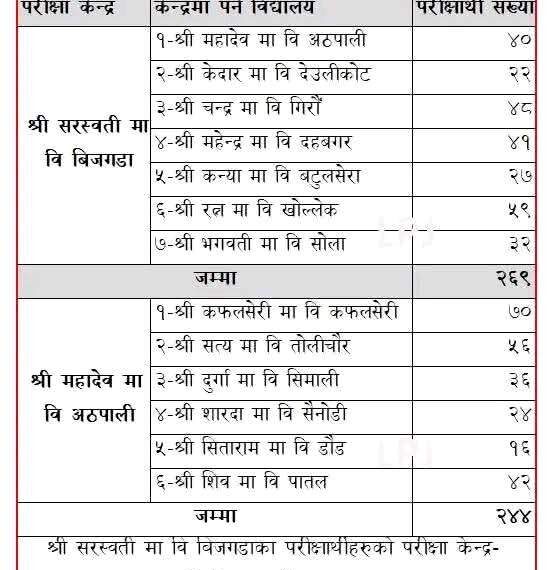 परीक्षा केन्द्र केन्द्रमा पर्ने विद्यालय परीक्षार्थी संख्या
१-श्री महादेव मा वि अठपाली ४०
२-श्री केदार मा वि देउलीकोट २२
३-श्री चन्द्र मा वि गिरौं ४८
श्री सरस्वती मा वि बिजगडा
४-श्री महेन्द्र मा वि दहबगर ४१
५-श्री कन्या मा वि बटुलसेरा २७
६-श्री रत्न मा वि खोल्लेक ५९
७-श्री भगवती मा वि सोला ३२
जम्मा २६९
१-श्री कफलसेरी मा वि कफलसेरी ७०
२-श्री सत्य मा वि तोलीचौर ५६
श्री महादेव मा वि अठपाली
३-श्री दुर्गा मा वि सिमाली ३६
४-श्री शारदा मा वि सैनोडी २४
५-श्री सिताराम मा वि डौड १६
६-श्री शिव मा वि पातल ४२
जम्मा २४४
श्री सरस्वती मा वि बिजगडाका परीक्षार्थीहरुको परीक्षा केन्द्र-